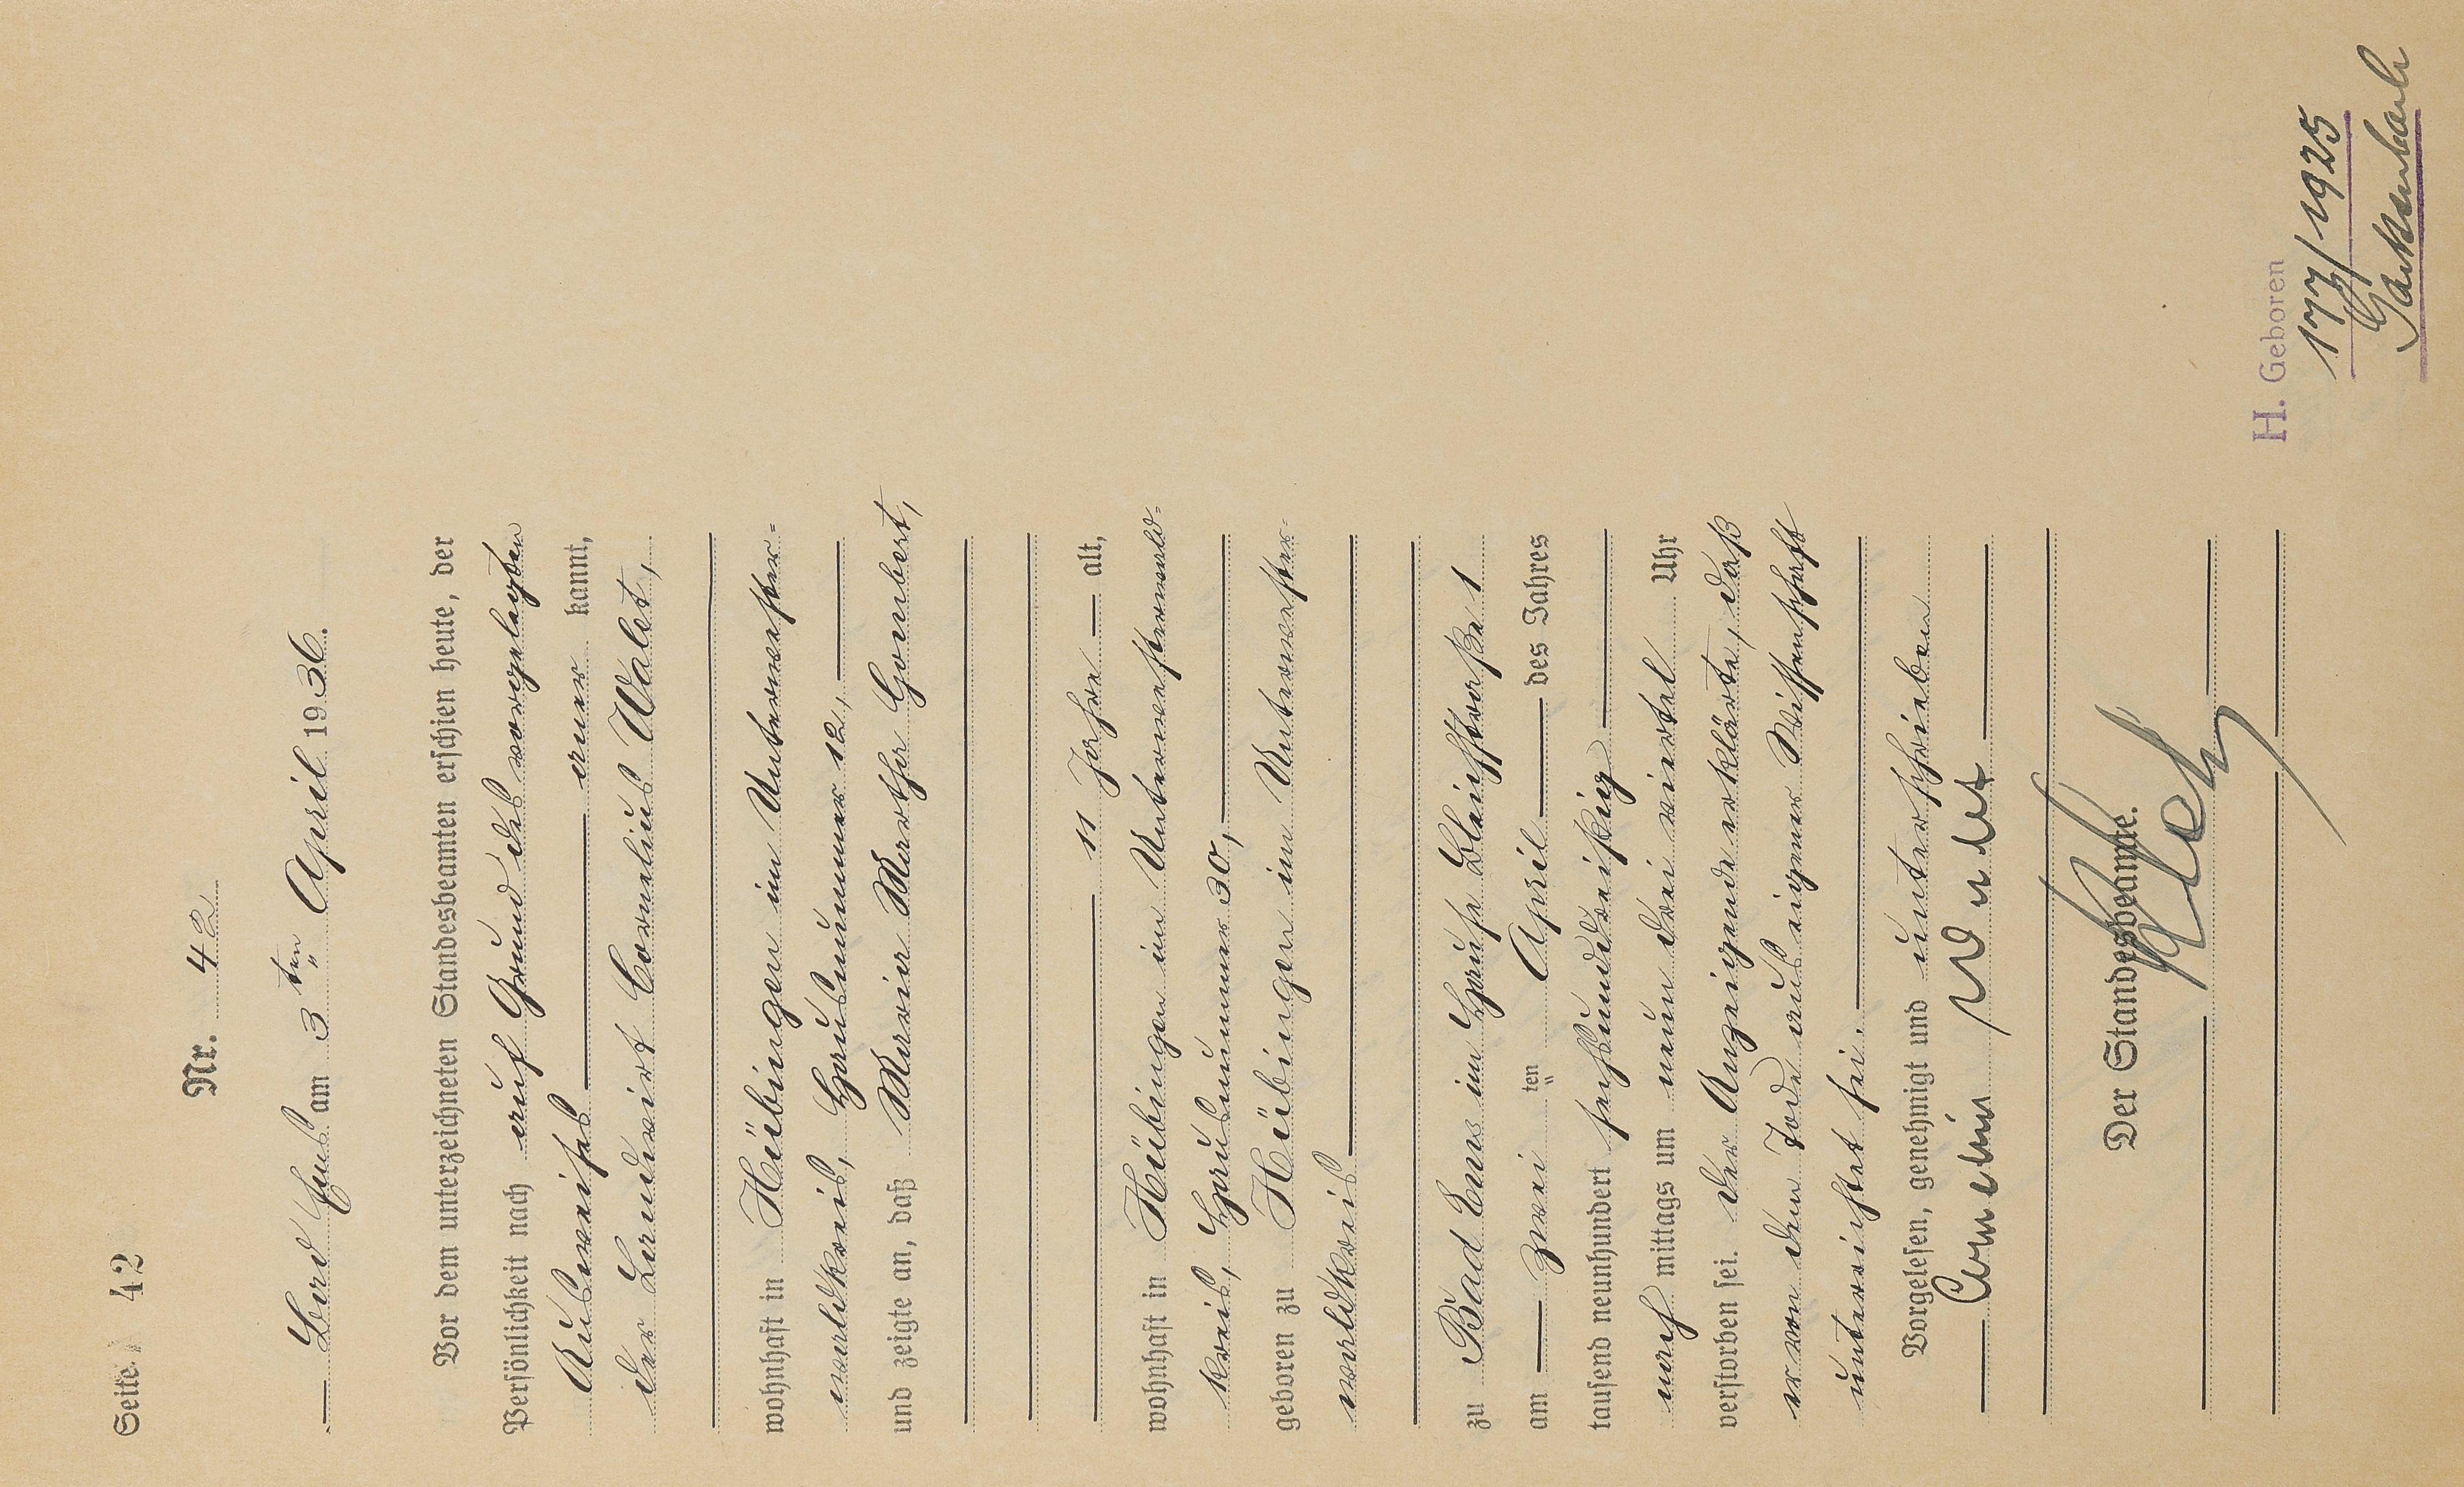 Seite 42
Nr. 42
Bad Ems am 3ten April 1936.
Vor dem unterzeichneten Standesbeamten erschien heute, der
Persönlichkeit nach auf Grund des vorgelegten
Ausweises aner kannt,
der Landwirt Cornelius Waldt,
wohnhaft in Hübingen im Unterwester-
waldkreis, Hausnummer 12,
und zeigte an, daß Maria Martha Gombert,
11 Jahre alt,
wohnhaft in Hübingen im Unterwesterwald-
kreis, Hausnummer 30,
geboren zu Hübingen im Unterwester-
waldkreis
zu Bad Ems im Hause Bleichstraße 1
am zwei ten April des Jahres
tausend neunhundert sechsunddreißig
nach mittags um neun drei viertel Uhr
verstorben sei. Der Anzeigende erklärte, daß
er von dem Tode aus eigener Wissenschaft
unterrichtet sei.
Vorgelesen, genehmigt und unterschrieben
Cornelius
Der Standesbeamte.
H. Geboren
177/1925
Gackenbach